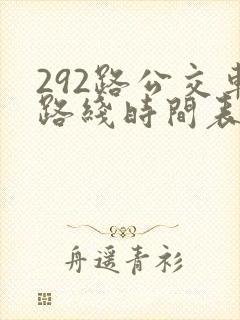 292路公交車
路綫時間表
舟遥青衫